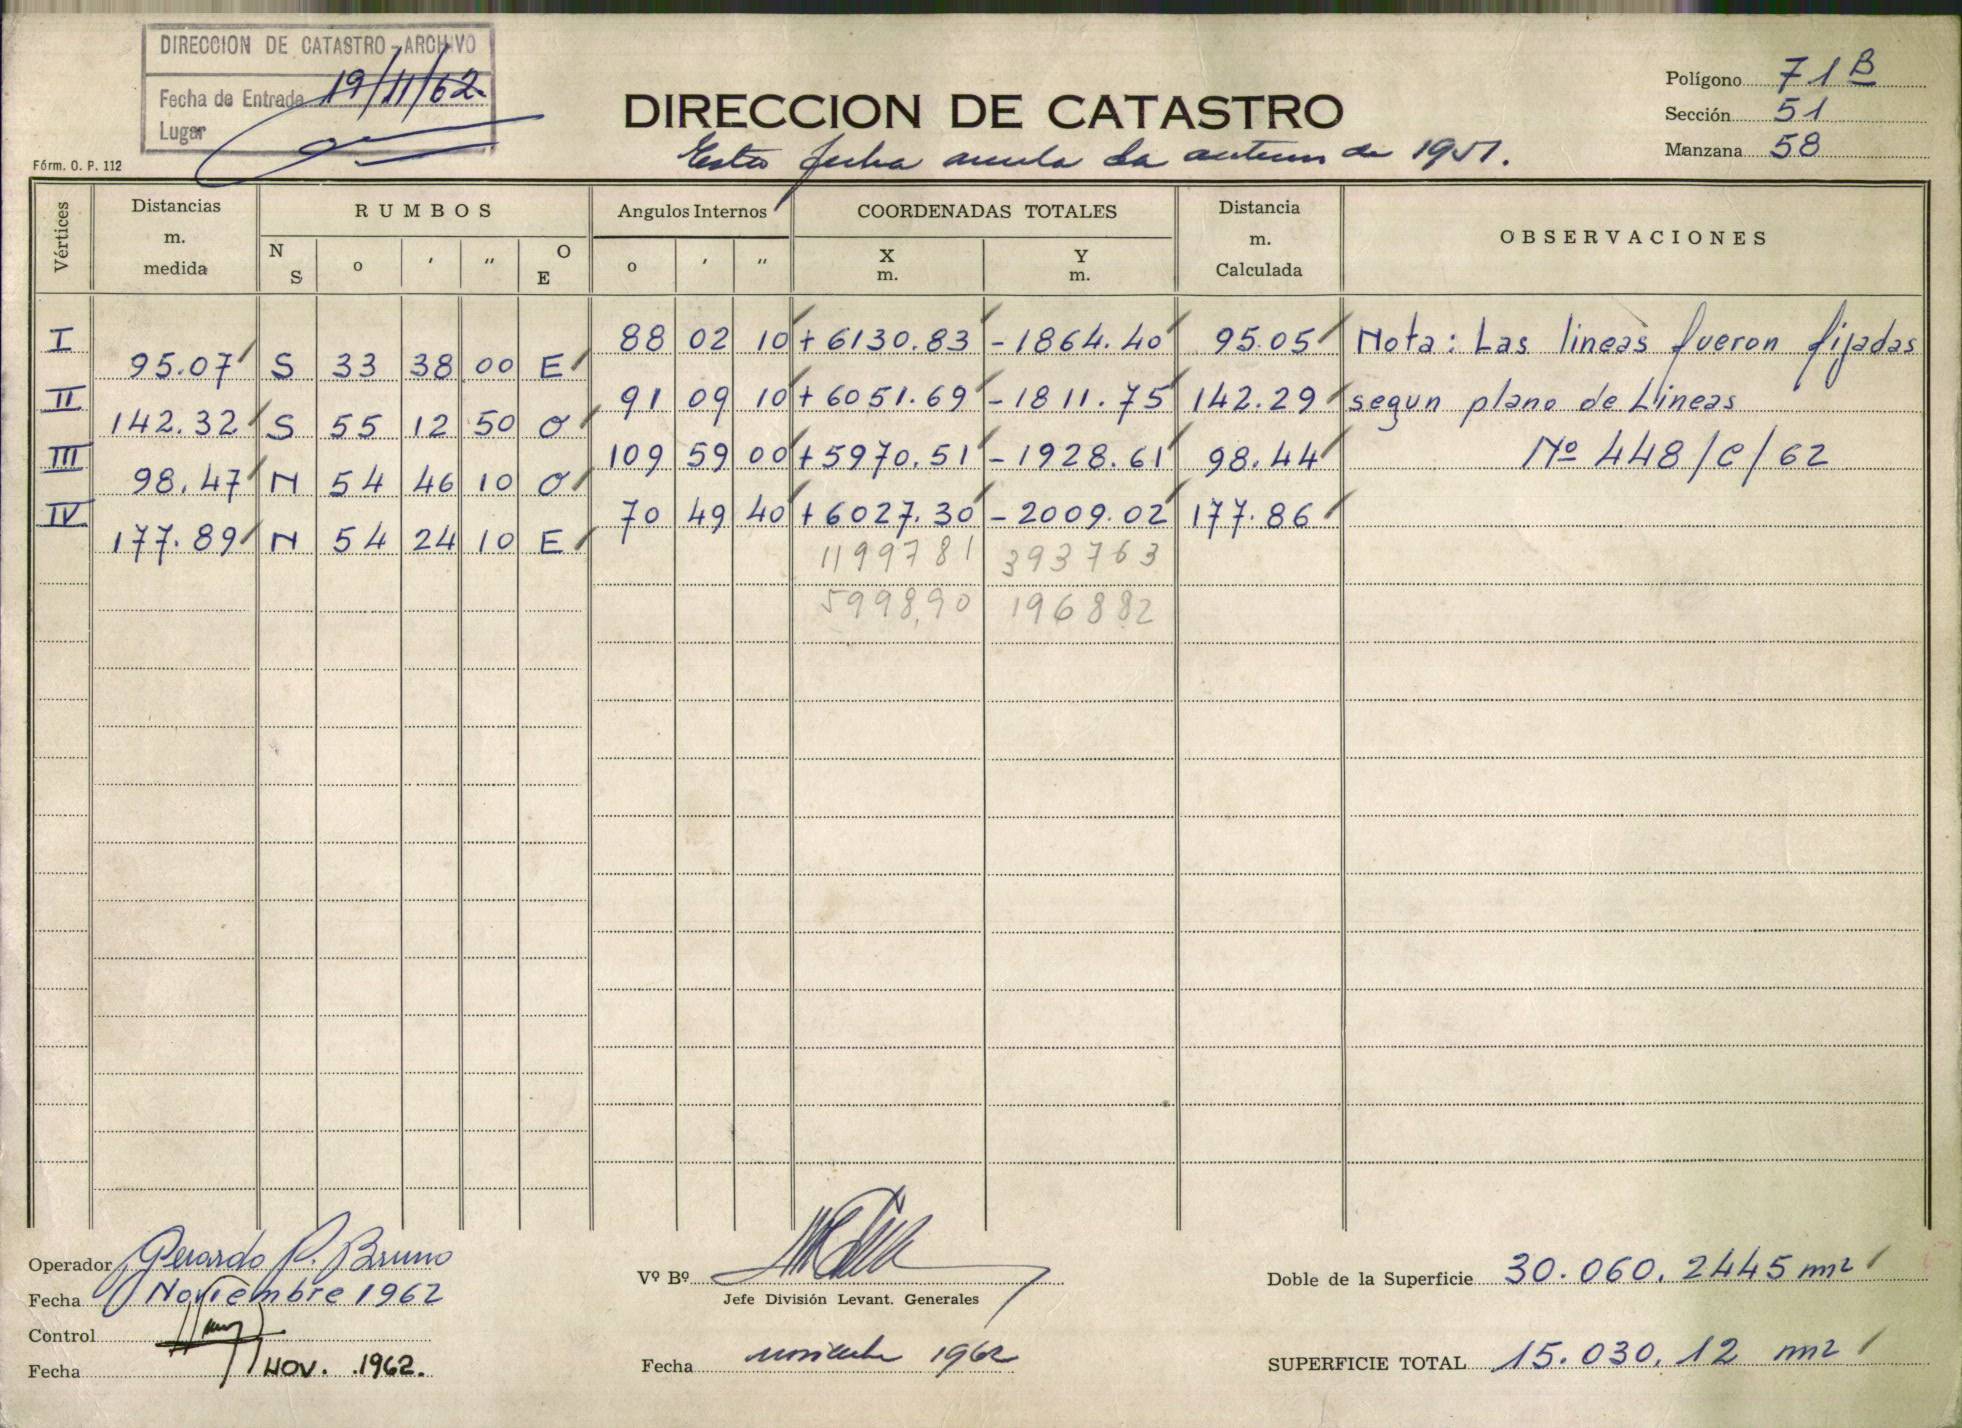 DIRECCION DE CATASTRO - ARCHIVO
Fecha de Entrada 19/11/62
Lugar
Fórm. O. P. 112
DIRECCION DE CATASTRO
Esta fecha anula la anterior de 1951.
Polígono 71 B
Sección 51
Manzana 58
Vértices
Distancias m. medida
RUMBOS
N S o ' " O E
Angulos Internos
o ' "
COORDENADAS TOTALES
X m. Y m.
Distancia m. Calculada
OBSERVACIONES
I 88 02 10 + 6130.83 - 1864.40 95.05 Nota: Las lineas fueron fijadas
95.07 S 33 38 00 E
II 91 09 10 + 6051.69 - 1811.75 142.29 segun plano de Lineas
142.32 S 55 12 50 O
III 109 59 00 + 5970.51 - 1928.61 98.44 Nº 448/C/62
98.47 N 54 46 10 O
IV 70 49 40 + 6027.30 - 2009.02 177.86
177.89 N 54 24 10 E
1199781 393763
5998,90 196882
Operador Gerardo P. Bruno
Fecha Noviembre 1962
Control
Fecha NOV. 1962.
Vº Bº
Jefe División Levant. Generales
Fecha noviembre 1962
Doble de la Superficie 30.060,2445 m2
SUPERFICIE TOTAL 15.030,12 m2